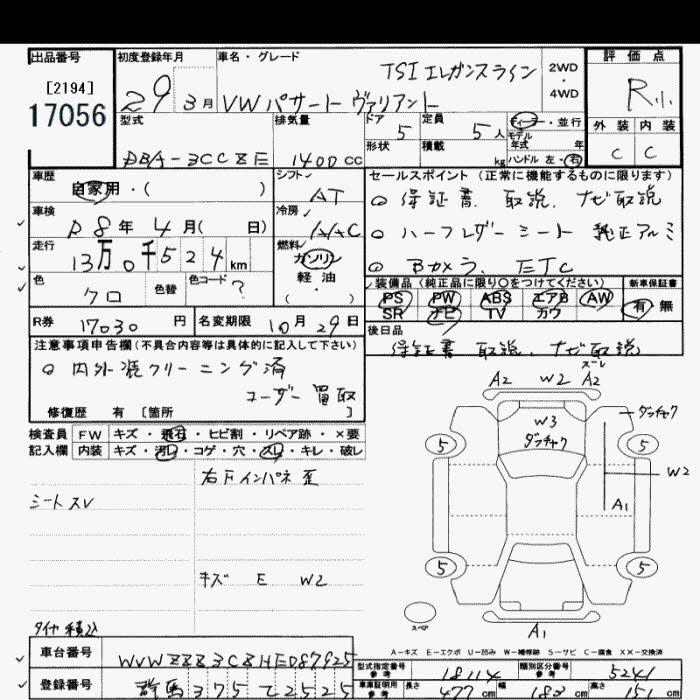 出品番号
[2194]
17056
初度登録年月
29 3月
車名・グレード
TSI エレガンスライン
VW パサート ヴァリアント
2WD
・
4WD
評価点
R小
外装 内装
C C
型式
DBA-3CCZE
排気量
1400cc
ドア 5
形状
定員 5人
積載 kg
ディーラー・並行
モデル年式 年
ハンドル 左・右
車歴
自家用・( )
シフト
AT
セールスポイント (正常に機能するものに限ります)
○ 保証書. 取説. ナビ取説
○ ハーフレザーシート 純正アルミ
○ Bカメラ. ETC
車検
R8年 4月( 日)
冷房
AAC
走行
13万0千524km
燃料
ガソリン
軽・油
・( )
色
クロ
色替
色コード ?
装備品 (純正品に限り○をつけてください)
PS PW ABS エアB AW
SR ナビ TV カワ
新車保証書
有・無
R券 17030円
名変期限 10月29日
後日品
保証書 取説. ナビ取説
注意事項申告欄(不具合内容等は具体的に記入して下さい)
○ 内外装クリーニング済
ユーザー買取
修復歴 有 [箇所 ]
検査員 FW キズ・飛石・ヒビ割・リペア跡・×要
記入欄 内装 キズ・汚レ・コゲ・穴・スレ・キレ・破レ
右Fインパネ歪
シートスレ
キズ E W2
タイヤ積込
A2 W2 A2
スレ
W3
ダッチャク
ダッチャク
5 5
W2
A1
5 5
スペア
A1
A-キズ E-エクボ U-凹み W-補修跡 S-サビ C-腐食 XX-交換済
車台番号 WVWZZZ3CZHE087925
型式指定番号 参考 18114
類別区分番号 参考 5241
登録番号 群馬375 て2525
車庫証明用 参考 長さ 477cm 幅 183cm 高さ 151cm